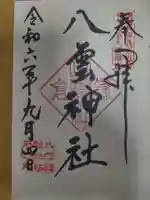 奉拝
八雲神社
令和六年九月四日